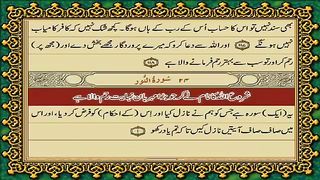 بھی سند نہیں تو اس کا حساب اُس کے رب کے ہاں ہوگا۔ کچھ شک نہیں کہ کافر کامیاب
نہیں ہونگے ﴿۱۱۷﴾ اور اللہ سے دعا کرو کہ میرے پروردگار مجھے بخش دے اور (مجھ پر)
رحم کر اور تو سب سے بہتر رحم فرمانے والا ہے ﴿۱۱۸﴾
۲۴ سورۃ النُّور
شروع اللہ کا نام لے کر جو بڑا مہربان نہایت رحم والا ہے
یہ (ایک) سورہ ہے جس کو ہم نے نازل کیا اور اس (کے احکام) کو فرض کر دیا، اور اس
میں صاف صاف آیتیں نازل کیں تاکہ تم یاد رکھو ﴿۱﴾